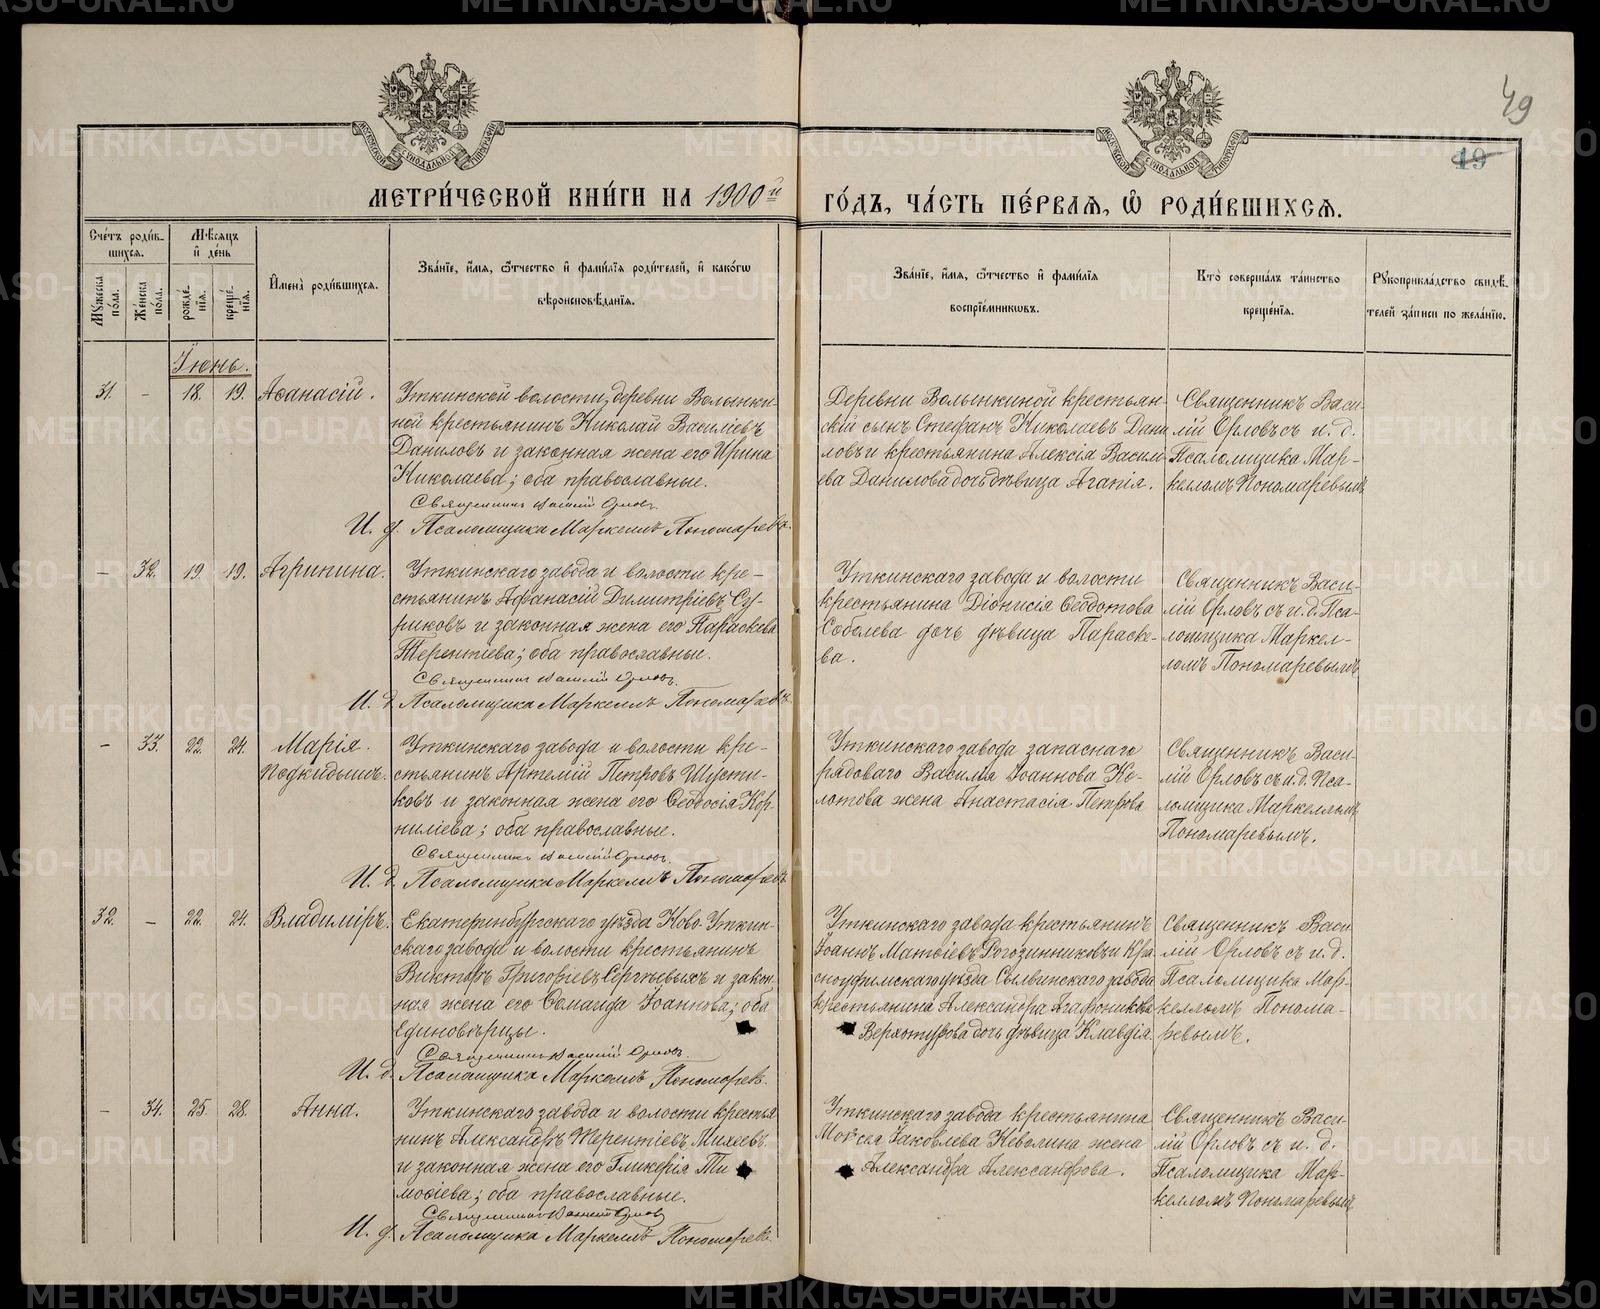 49
19
МОСКОВСКОЙ СѴНОДАЛЬНОЙ ТИПОГРАФІИ
МОСКОВСКОЙ СѴНОДАЛЬНОЙ ТИПОГРАФІИ
МЕТРИ́ЧЕСКОЙ КНИ́ГИ НА 1900й
ГО́ДЪ, ЧА́СТЬ ПЕ́РВАѦ, Ѡ҆ РОДИ́ВШИХСѦ.
Сче́тъ роди́вшихсѧ.
Мꙋжеска по́ла.
Же́нска по́ла.
Мѣ́сѧцъ и҆ де́нь
рожде́нїѧ.
креще́нїѧ.
И҆мена̀ роди́вшихсѧ.
Зва́нїе, и҆́мѧ, ѻ҆́тчество и҆ фами́лїѧ роди́телей, и҆ како́гѡ
вѣроисповѣ́данїѧ.
Зва́нїе, и҆́мѧ, ѻ҆́тчество и҆ фами́лїѧ
воспрїе́мникѡвъ.
Кто̀ соверша́лъ та́инство
креще́нїѧ.
Рꙋкоприкла́дство свидѣ́телей за́писи по жела́нїю.
Іюнь.
31. - 18. 19. Аѳанасій.
Уткинской волости, деревни Волынки-
ной крестьянинъ Николай Василіевъ
Даниловъ и законная жена его Ирина
Николаева; оба православные.
Священникъ Василій Орловъ.
И. д. Псаломщика Маркеллъ Пономаревъ.
Деревни Волынкиной крестьян-
скій сынъ Стефанъ Николаевъ Дани
ловъ и крестьянина Алексія Васил
ева Данилова дочь дѣвица Агапія.
Священникъ Васи-
лій Орловъ съ и. д.
Псаломщика Мар-
келломъ Пономаревымъ
- 32. 19. 19. Агрипина.
Уткинскаго завода и волости кре-
стьянинъ Афанасій Димитріевъ Су-
риковъ и законная жена его Параскева
Терентіева; оба православные.
Священникъ Василій Орловъ.
И. д. Псаломщика Маркеллъ Пономаревъ.
Уткинскаго завода и волости
крестьянина Діонисія Ѳеодотова
Соболева дочь дѣвица Параске-
ва.
Священникъ Васи-
лій Орловъ съ и. д. Пса-
ломщика Маркел-
ломъ Пономаревымъ
- 33. 22. 24. Марія.
Подкидышъ.
Уткинскаго завода и волости кре-
стьянинъ Артемій Петровъ Шусти-
ковъ и законная жена его Ѳеодосія Кор-
ниліева; оба православные.
Священникъ Василій Орловъ.
И. д. Псаломщика Маркеллъ Пономаревъ
Уткинскаго завода запаснаго
рядоваго Василія Іоаннова Ко-
лотова жена Анастасія Петрова
Священникъ Васи-
лій Орловъ съ и. д. Пса-
ломщика Маркелломъ
Пономаревымъ.
32. - 22. 24. Владиміръ.
Екатеринбургскаго уѣзда Ново-Уткин-
скаго завода и волости крестьянинъ
Викторъ Григоріевъ Сергѣевыхъ и закон
ная жена его Соманида Іоаннова; оба
единовѣрцы.
Священникъ Василій Орловъ.
И. д. Псаломщика Маркеллъ Пономаревъ.
Уткинскаго завода крестьянинъ
Іоаннъ Матѳіевъ Рогозинниковъ и Кра
сноуфимскаго уѣзда Сылвинскаго завода
крестьянина Александра Агафоникова
Верхотурова дочь дѣвица Клавдія.
Священникъ Васи
лій Орловъ съ и. д.
Псаломщика Мар-
келломъ Понома-
ревымъ.
- 34. 25. 28. Анна.
Уткинскаго завода и волости крестья
нинъ Александръ Терентіевъ Михеевъ
и законная жена его Гликерія Ти
моѳіева; оба православные.
Священникъ Василій Орловъ
И. д. Псаломщика Маркеллъ Пономаревъ.
Уткинскаго завода крестьянина
Моѵсея Іаковлева Неволина жена
Александра Александрова.
Священникъ Васи-
лій Орловъ съ и. д.
Псаломщика Мар-
келломъ Пономаревымъ
METRIKI.GASO-URAL.RU